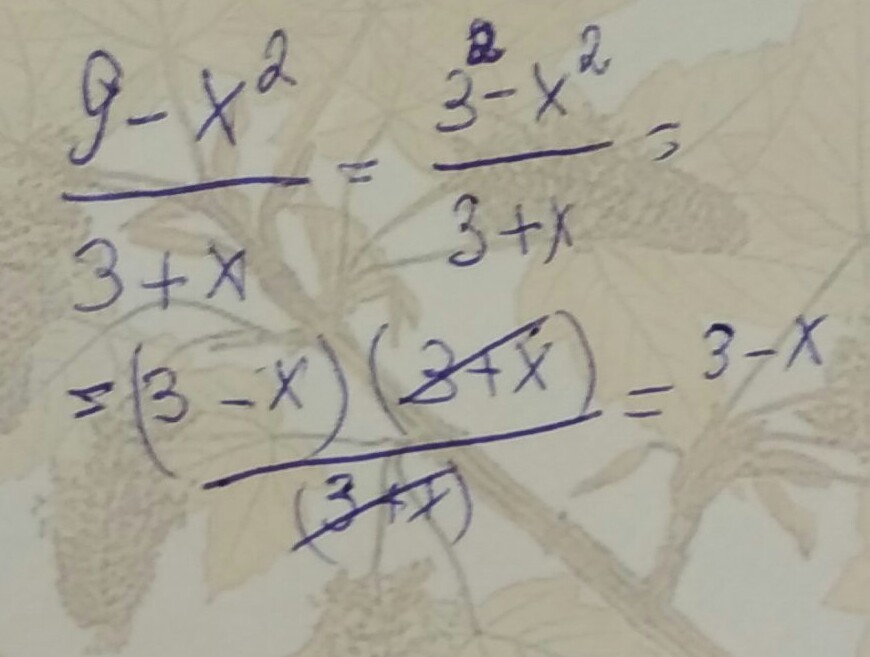 \frac{9 - x^2}{3 + x} = \frac{3^2 - x^2}{3 + x} =
= \frac{(3 - x)(3 + x)}{(3 + x)} = 3 - x